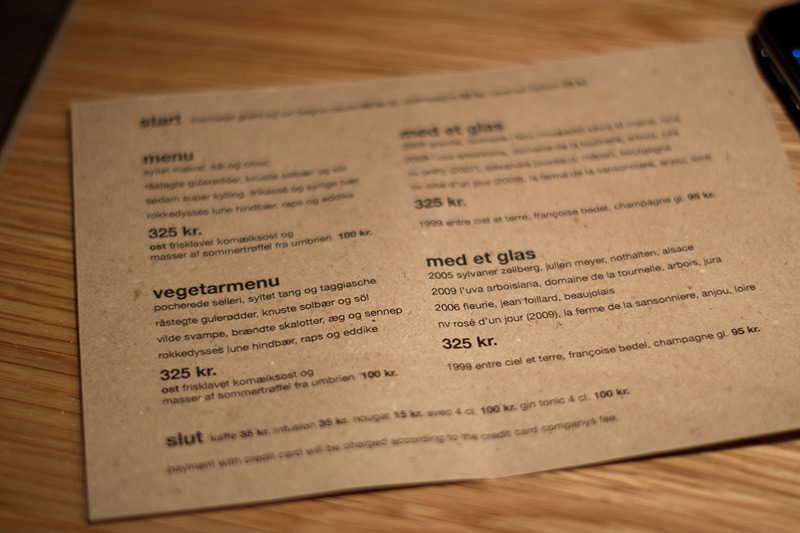 start
menu
syltet makrel, kål og citron
råstegte gulerødder, knuste solbær og söl
sedam super kylling, frikassé og syrlige bær
rokkedysses lune hindbær, raps og eddike
325 kr.
ost frisklavet komælksost og
masser af sommertrøffel fra umbrien 100 kr.
vegetarmenu
pocherede selleri, syltet tang og taggiasche
råstegte gulerødder, knuste solbær og söl
vilde svampe, brændte skalotter, æg og sennep
rokkedysses lune hindbær, raps og eddike
325 kr.
ost frisklavet komælksost og
masser af sommertrøffel fra umbrien 100 kr.
med et glas
domaine de la tournelle, arbois, jura
nv rosé d'un jour (2009), la ferme de la sansonniere, anjou, loire
325 kr.
1999 entre ciel et terre, françoise bedel, champagne gl. 95 kr.
med et glas
2005 sylvaner zellberg, julien meyer, nothalten, alsace
2009 l'uva arbosiana, domaine de la tournelle, arbois, jura
2006 fleurie, jean foillard, beaujolais
nv rosé d'un jour (2009), la ferme de la sansonniere, anjou, loire
325 kr.
1999 entre ciel et terre, françoise bedel, champagne gl. 95 kr.
slut kaffe 35 kr. infusion 35 kr. nougat 15 kr. avec 4 cl. 100 kr. gin tonic 4 cl. 100 kr.
payment with credit card will be charged according to the credit card companys fee.